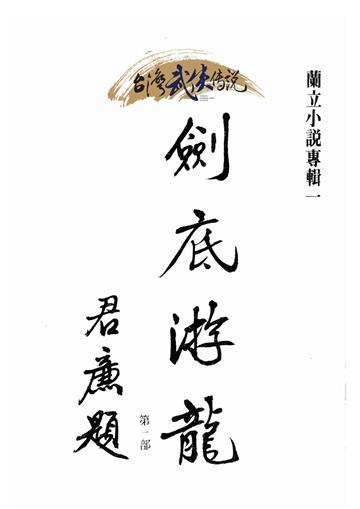 蘭立小説專輯一
台灣武俠傳説
劍底游龍
第一部
君廉題